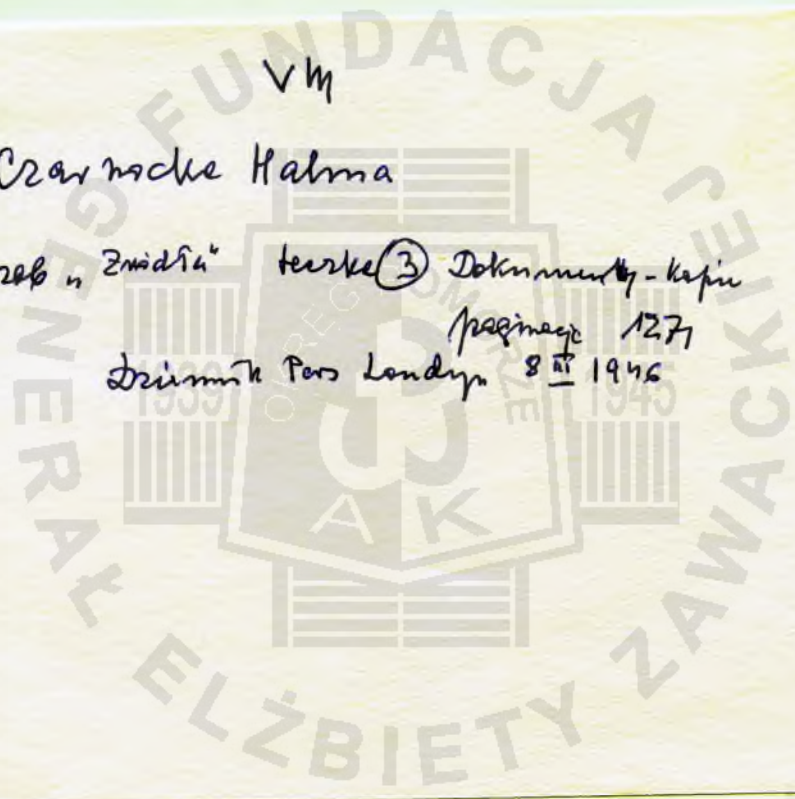 VM
Czarnocka Halina
zob „Źródła" teczka ③ Dokumenty - kopie
paginacja 1271
Dziennik Pers Londyn 8 III 1946
FUNDACJA GENERAŁ ELŻBIETY ZAWACKIEJ
OKRĘG POMORZE
1939 1945
AK